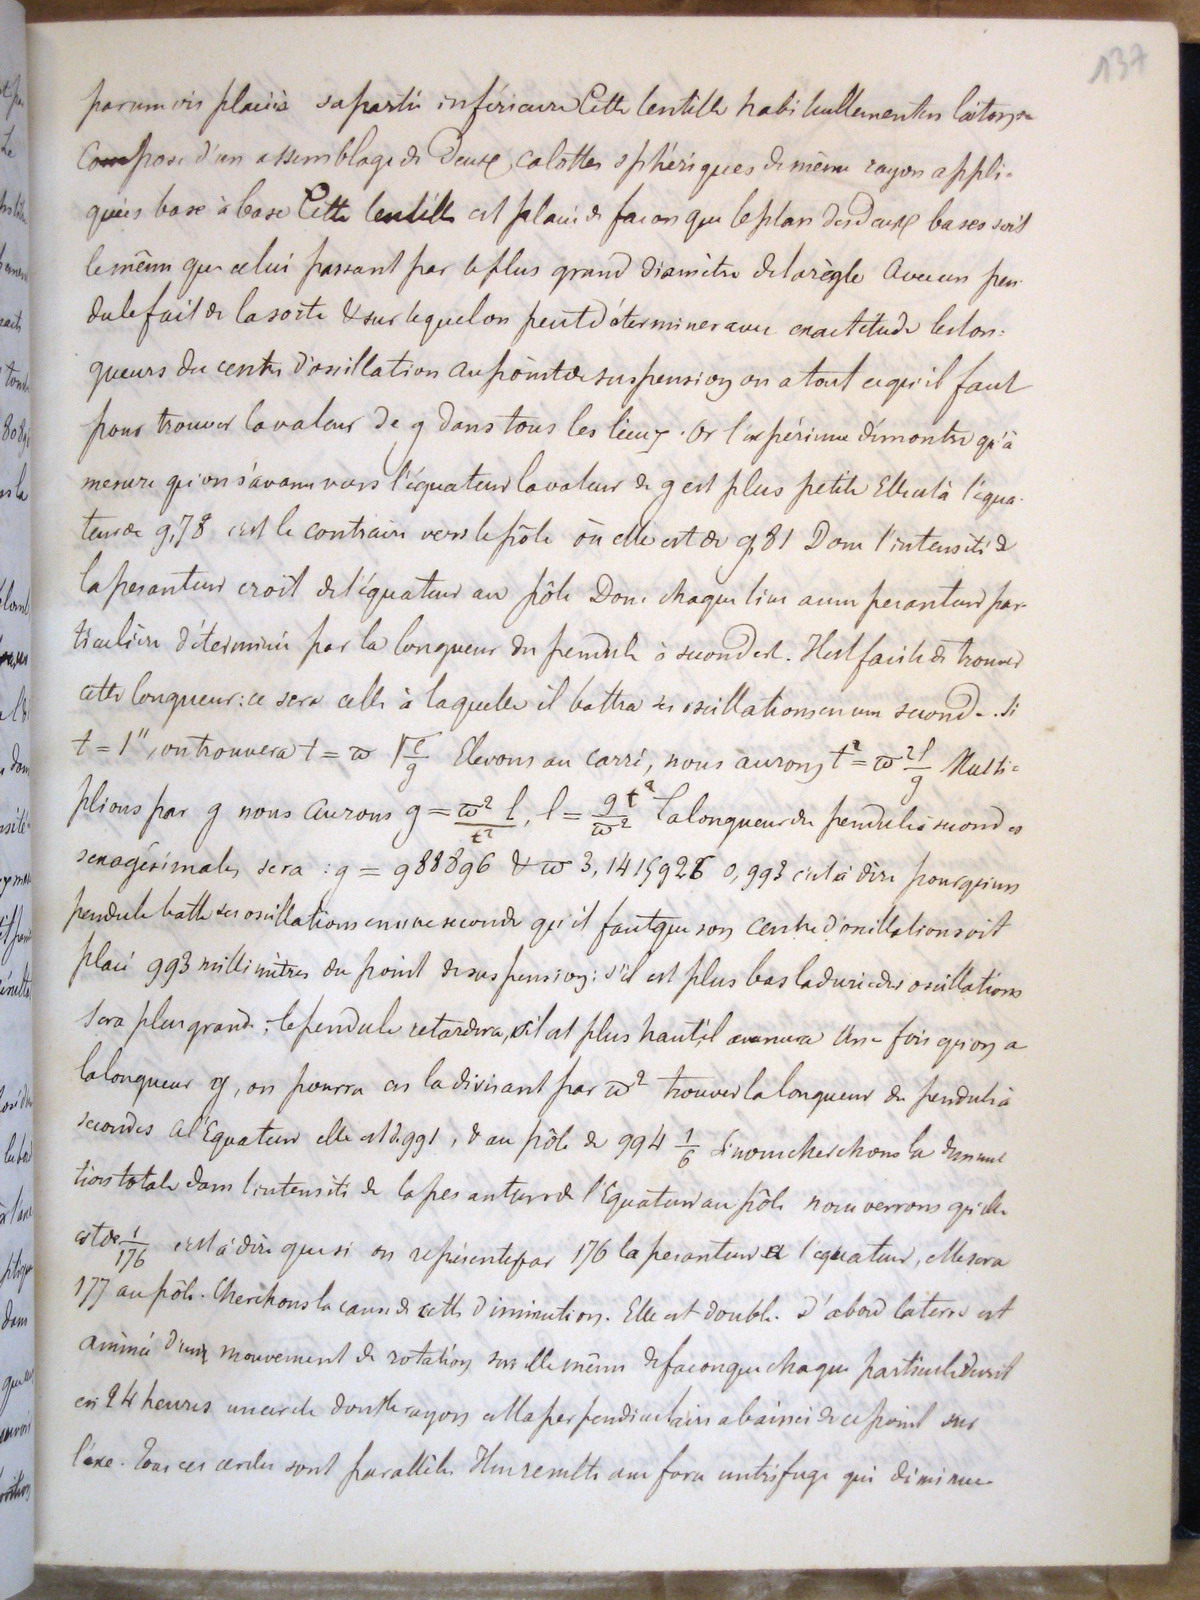 137
par un vis placée à sa partie inférieure Cette lentille habituellement en laiton se
compose d'un assemblage de Deux calottes sphériques de même rayon appli-
quées base à base Cette lentille est placée de façon que le plan des deux bases soit
le même que celui passant par le plus grand diamètre de la règle Avec un pen-
dule fait de la sorte & sur lequel on peut déterminer avec exactitude les lon-
gueurs du centre d'oscillation au point de suspension on a tout ce qu'il faut
pour trouver la valeur de g dans tous les lieux. Or l'expérience démontre qu'à
mesure qu'on s'avance vers l'équateur la valeur de g est plus petite Elle est à l'équa-
teur de 9,78 c'est le contraire vers le pôle où elle est de 9,81 Donc l'intensité de
la pesanteur croît de l'équateur au pôle Donc chaque lieu a une pesanteur par-
ticulière déterminée par la longueur du pendule à secondes. Il est facile de trouver
cette longueur: ce sera celle à laquelle il battra ses oscillations en une seconde. Si
t = 1", on trouvera t = ϖ √l/g Elevons au carré, nous aurons t² = ϖ² l/g Multi-
plions par g nous aurons g = ϖ² l/t², l = g t²/ϖ² La longueur du pendule à secondes
sexagésimales sera : g = 988896 & ϖ 3,1415926 0,993 c'est à dire pour qu'un
pendule batte ses oscillations en une seconde qu'il faut que son centre d'oscillation soit
placé 993 millimètres du point de suspension: s'il est plus bas la durée des oscillations
sera plus grande; le pendule retardera, s'il est plus haut il avancera Une fois qu'on a
la longueur g, on pourra en la divisant par ϖ² trouver la longueur du pendule à
secondes A l'Equateur elle est de 991, & au pôle de 994 1/6 Si nous cherchons la diminu
tion totale dans l'intensité de la pesanteur de l'Equateur au pôle nous verrons qu'elle
est de 1/176 c'est à dire que si on représente par 176 la pesanteur à l'équateur, elle sera
177 au pôle. Cherchons la cause de cette diminution. Elle est double. D'abord la terre est
animée d'un mouvement de rotation sur elle même de façon que chaque particule décrit
en 24 heures un cercle dont le rayon est la perpendiculaire abaissée de ce point sur
l'axe. Tous ces cercles sont parallèles Il en résulte une force centrifuge qui diminue